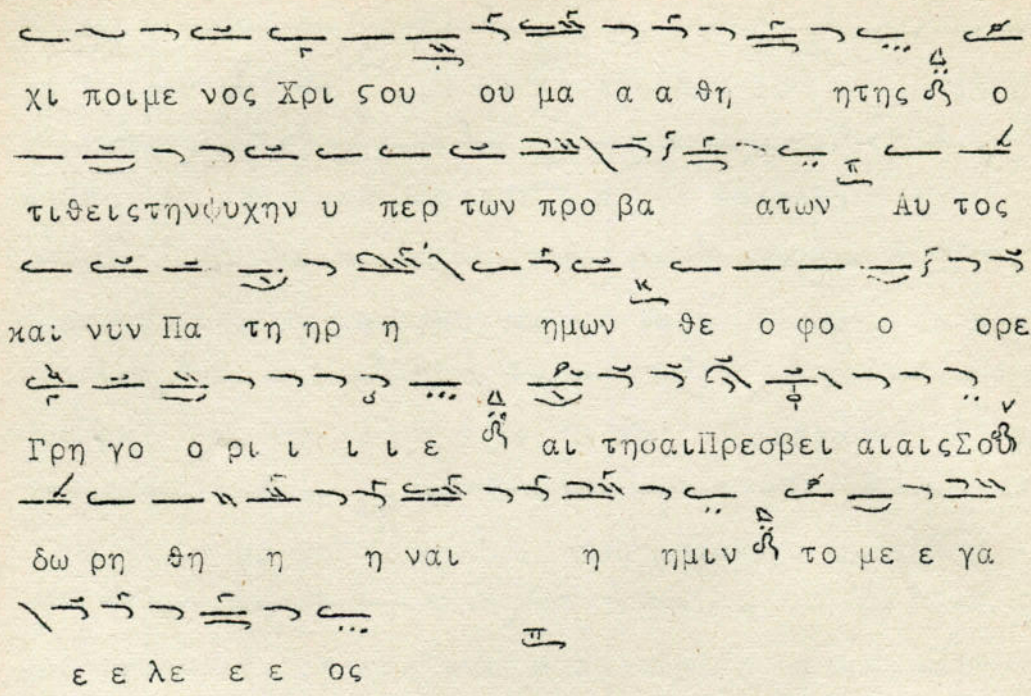 χι ποιμε νος Χρι ςου ου μα α α θη ητης ο
τιθειςτηνψυχην υ περ των προ βα ατων Αυ τος
και νυν Πα τη ηρ η ημων θε ο φο ο ορε
Γρη γο ο ρι ι ι ι ε αι τησαιΠρεσβει αιαιςΣου
δω ρη θη η η ναι η ημιν το με ε γα
ε ε λε ε ε ος